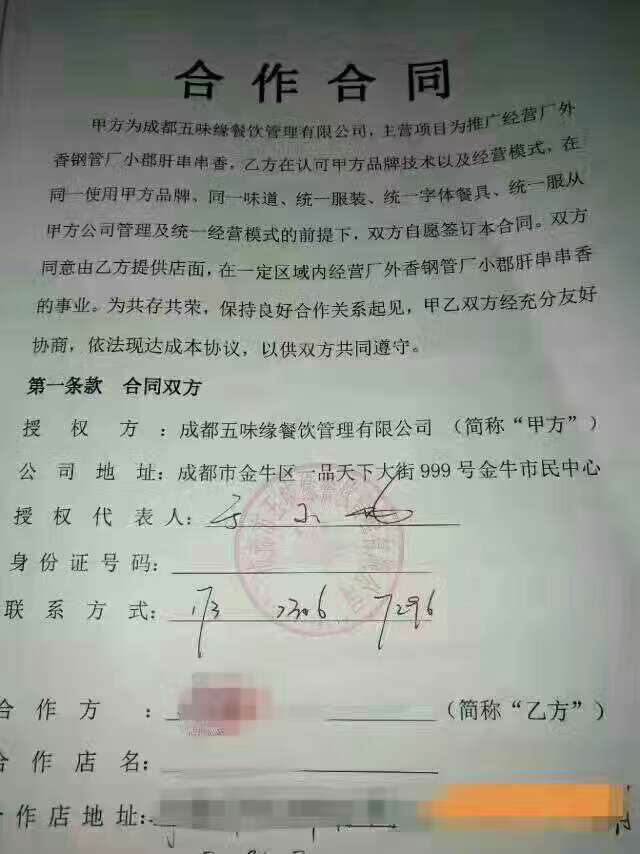 合作合同
甲方为成都五味缘餐饮管理有限公司，主营项目为推广经营厂外
香钢管厂小郡肝串串香，乙方在认可甲方品牌技术以及经营模式，在
同一使用甲方品牌、同一味道、统一服装、统一字体餐具、统一服从
甲方公司管理及统一经营模式的前提下，双方自愿签订本合同。双方
同意由乙方提供店面，在一定区域内经营厂外香钢管厂小郡肝串串香
的事业。为共存共荣，保持良好合作关系起见，甲乙双方经充分友好
协商，依法现达成本协议，以供双方共同遵守。
第一条款 合同双方
授权方：成都五味缘餐饮管理有限公司（简称“甲方”）
公司地址：成都市金牛区一品天下大街999号金牛市民中心
授权代表人：
身份证号码：
联系方式：173 2306 7296
合作方：（简称“乙方”）
合作店名：
作店地址：